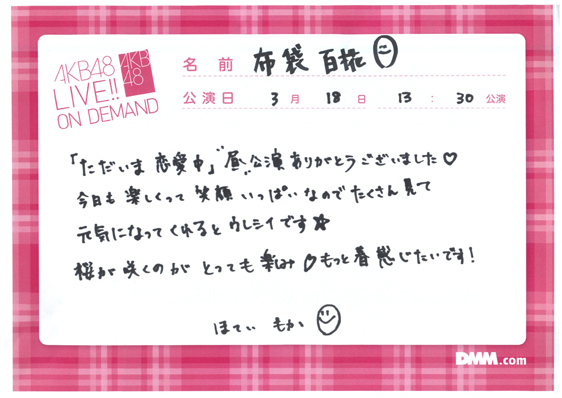 AKB48
LIVE!!
ON DEMAND
AKB
48
名前 布袋 百椛
公演日 3月 18日 13:30公演
「ただいま 恋愛中」"昼"公演ありがとうございました♡
今日も 楽しくって 笑顔 いっぱいなので たくさん 見て
元気になってくれると ウレシイです☆
桜が 咲くのが とっても 楽しみ♡もっと春感じたいです!
ほてい もか
DMM.com